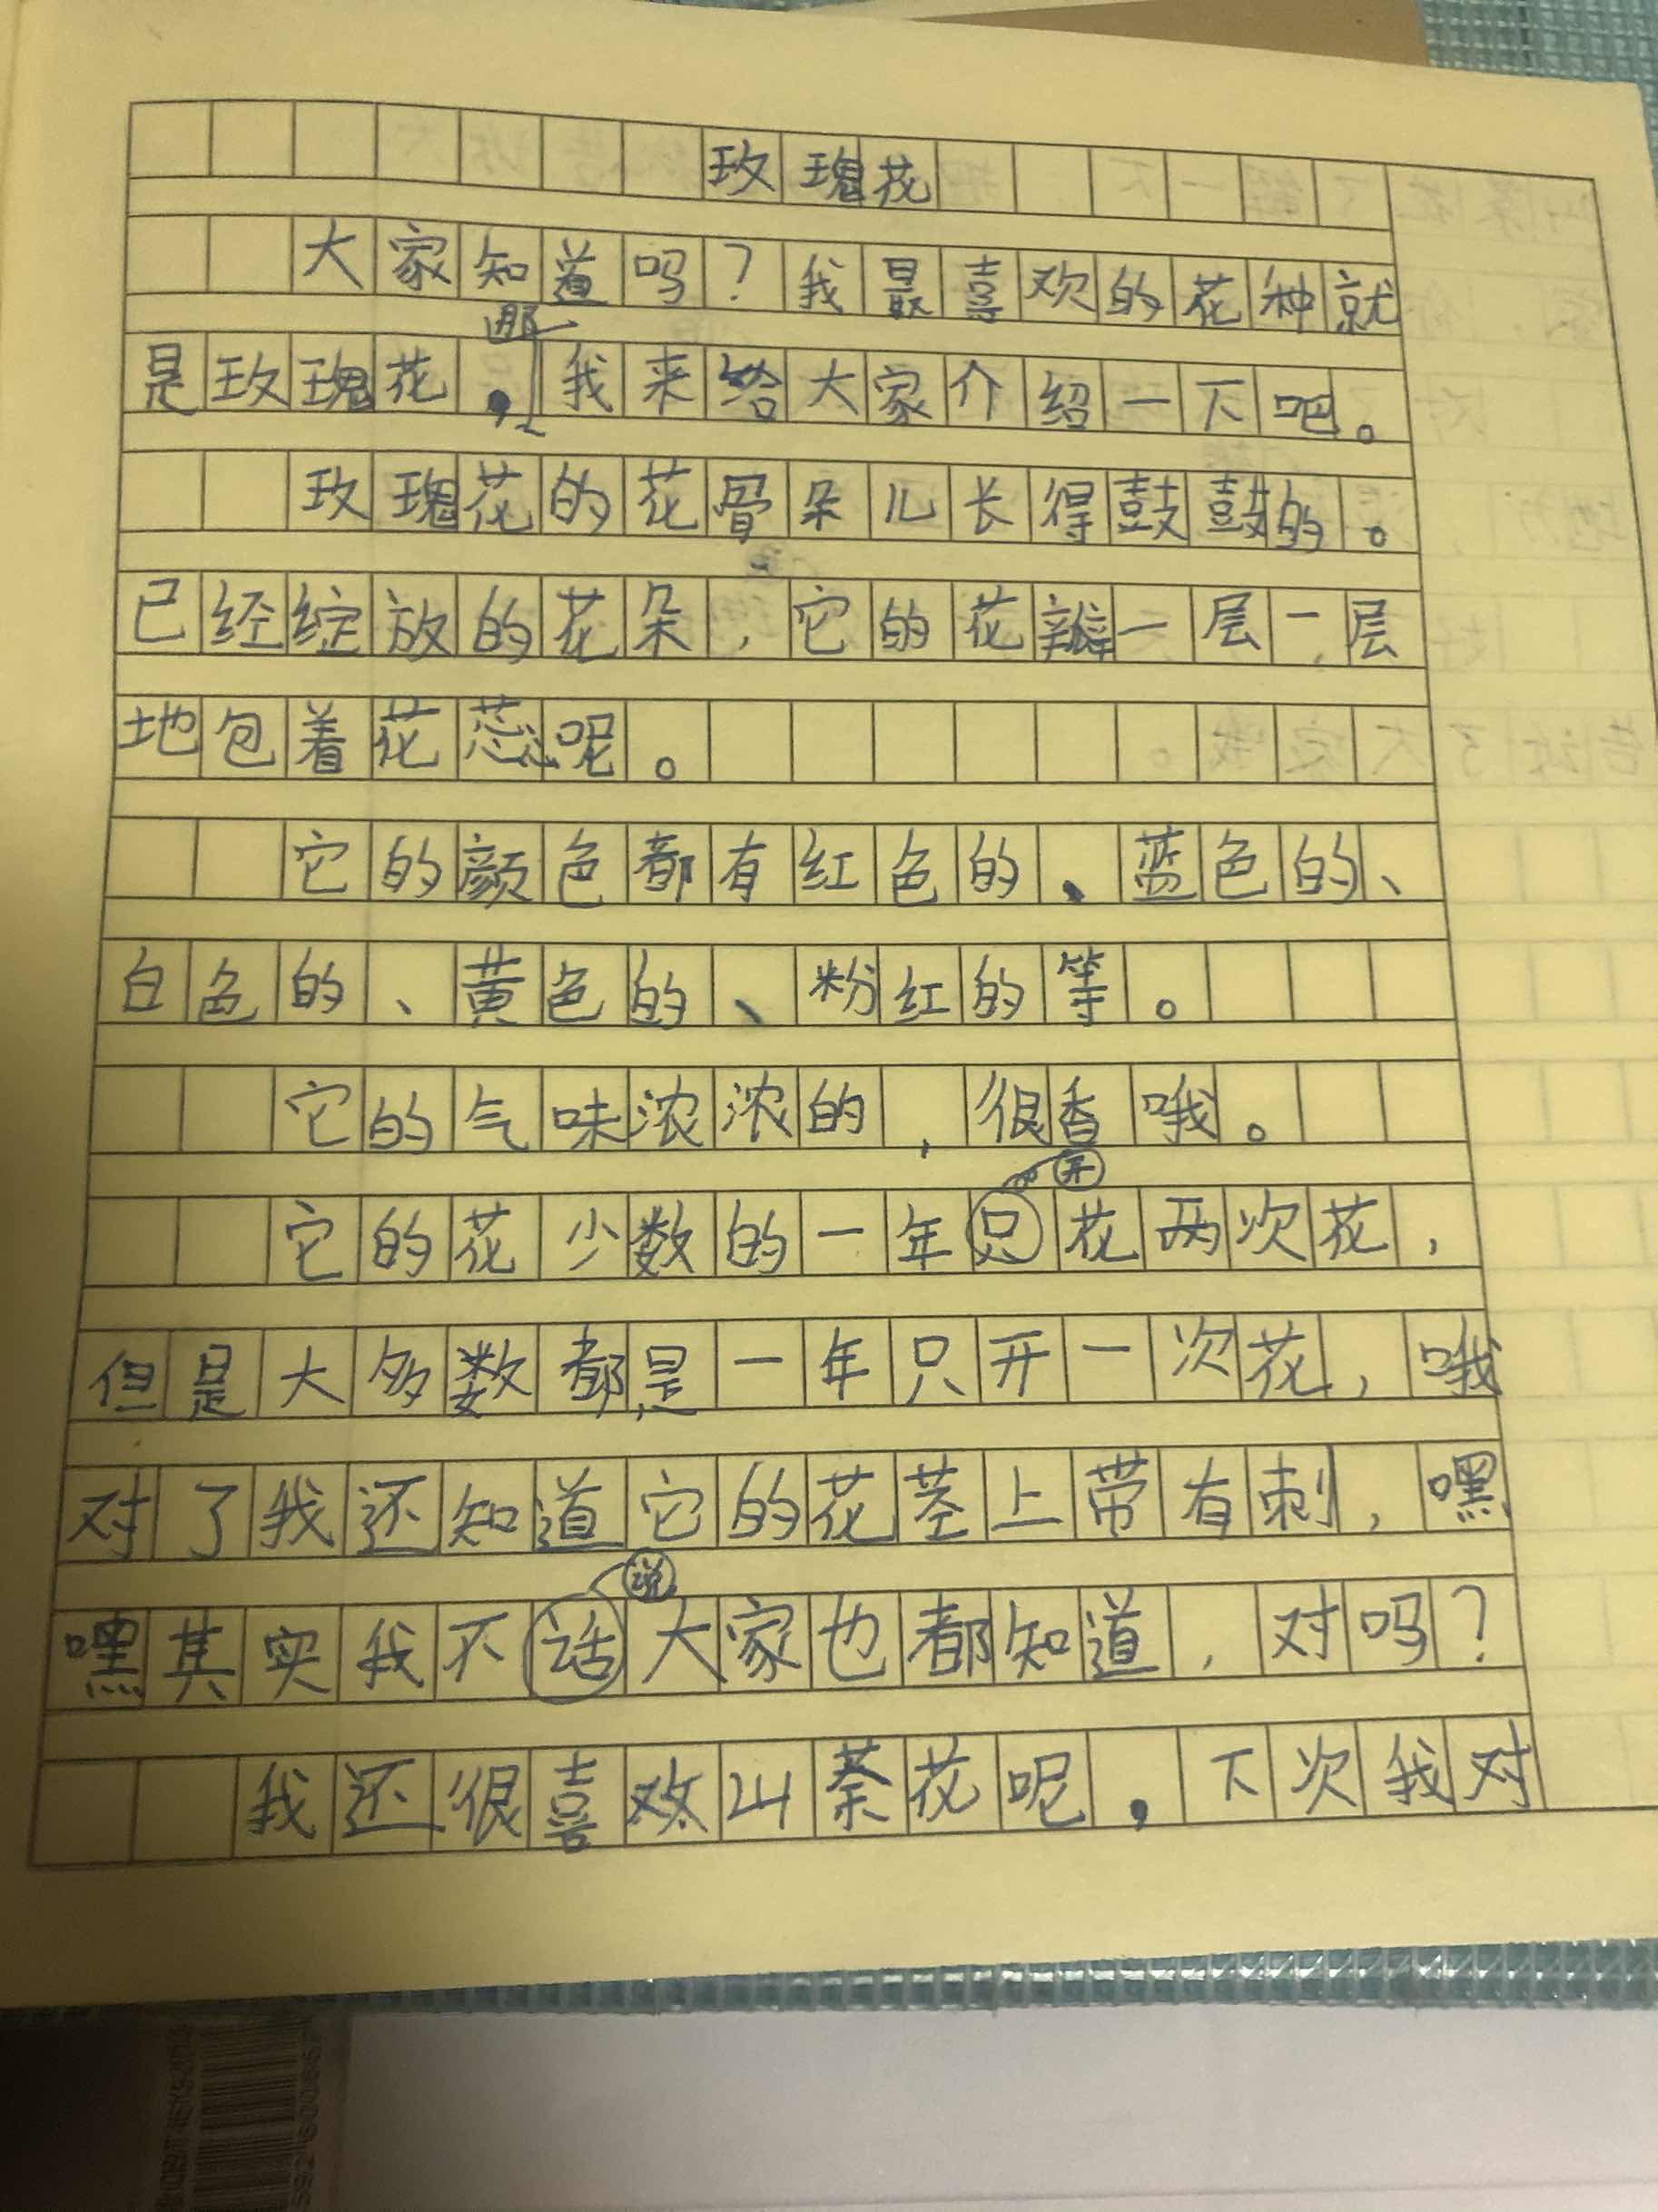 玫瑰花
大家知道吗？我最喜欢的花种就
是玫瑰花，那我来给大家介绍一下吧。
玫瑰花的花骨朵儿长得鼓鼓的。
已经绽放的花朵，它的花瓣一层一层
地包着花蕊呢。
它的颜色都有红色的、蓝色的、
白色的、黄色的、粉红的等。
它的气味浓浓的，很香哦。
开
它的花少数的一年只花两次花，
但是大多数都是一年只开一次花，哦
对了我还知道它的花茎上带有刺，嘿
说
嘿其实我不话大家也都知道，对吗？
我还很喜欢山茶花呢，下次我对